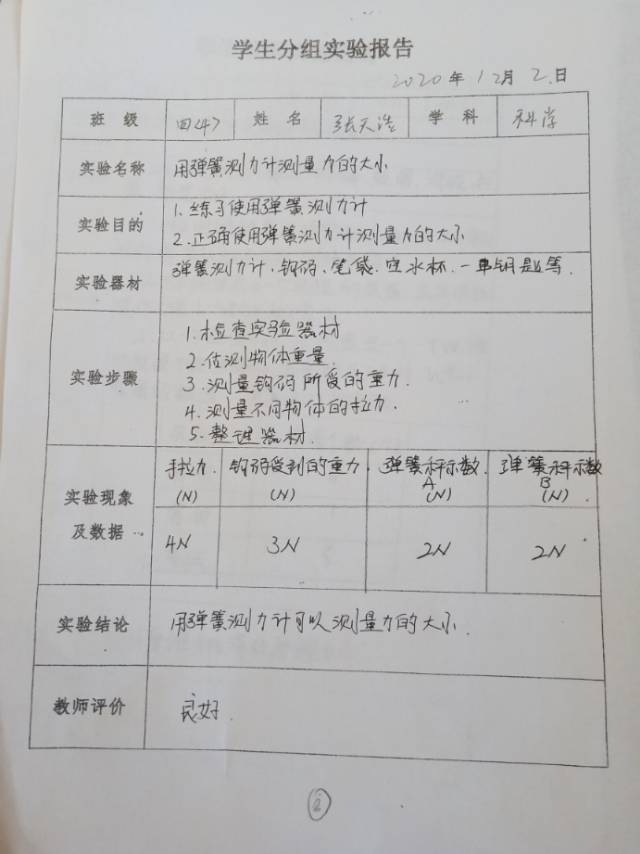 学生分组实验报告
2020年12月2日
班级 四<4> 姓名 张天浩 学科 科学
实验名称 用弹簧测力计测量力的大小
实验目的 1.练习使用弹簧测力计
2.正确使用弹簧测力计测量力的大小
实验器材 弹簧测力计、钩码、笔袋、空水杯、一串钥匙等.
实验步骤 1.检查实验器材
2.估测物体重量.
3.测量钩码所受的重力.
4.测量不同物体的拉力.
5.整理器材.
实验现象及数据 手拉力.(N) 钩码受到的重力.(N) 弹簧秤A示数.(N) 弹簧秤B示数(N)
4N 3N 2N 2N
实验结论 用弹簧测力计可以测量力的大小.
教师评价 良好.
②